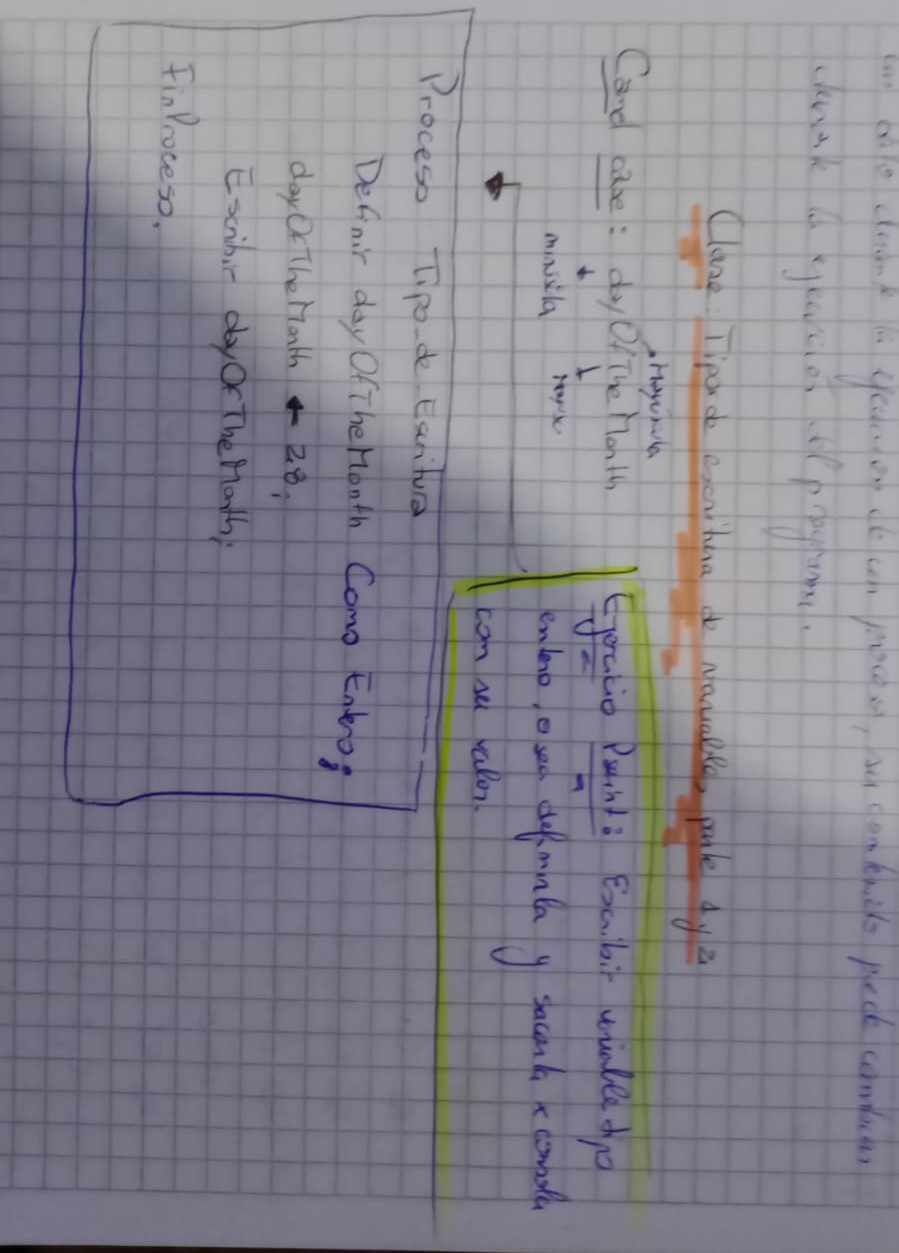 un dato durante la ejecución de un proceso, su contenido puede cambiar
durante la ejecución del programa.
Clase: Tipos de escritura de variables, parte 1 y 2
Mayúscula
Camel case: dayOfTheMonth
minúscula
Ejercicio PseInt: Escribir variable tipo
entero, o sea definirla y sacarla x consola
con su valor.
Proceso Tipo_de_Escritura
Definir dayOfTheMonth Como Entero;
dayOfTheMonth ← 28;
Escribir dayOfTheMonth;
FinProceso.